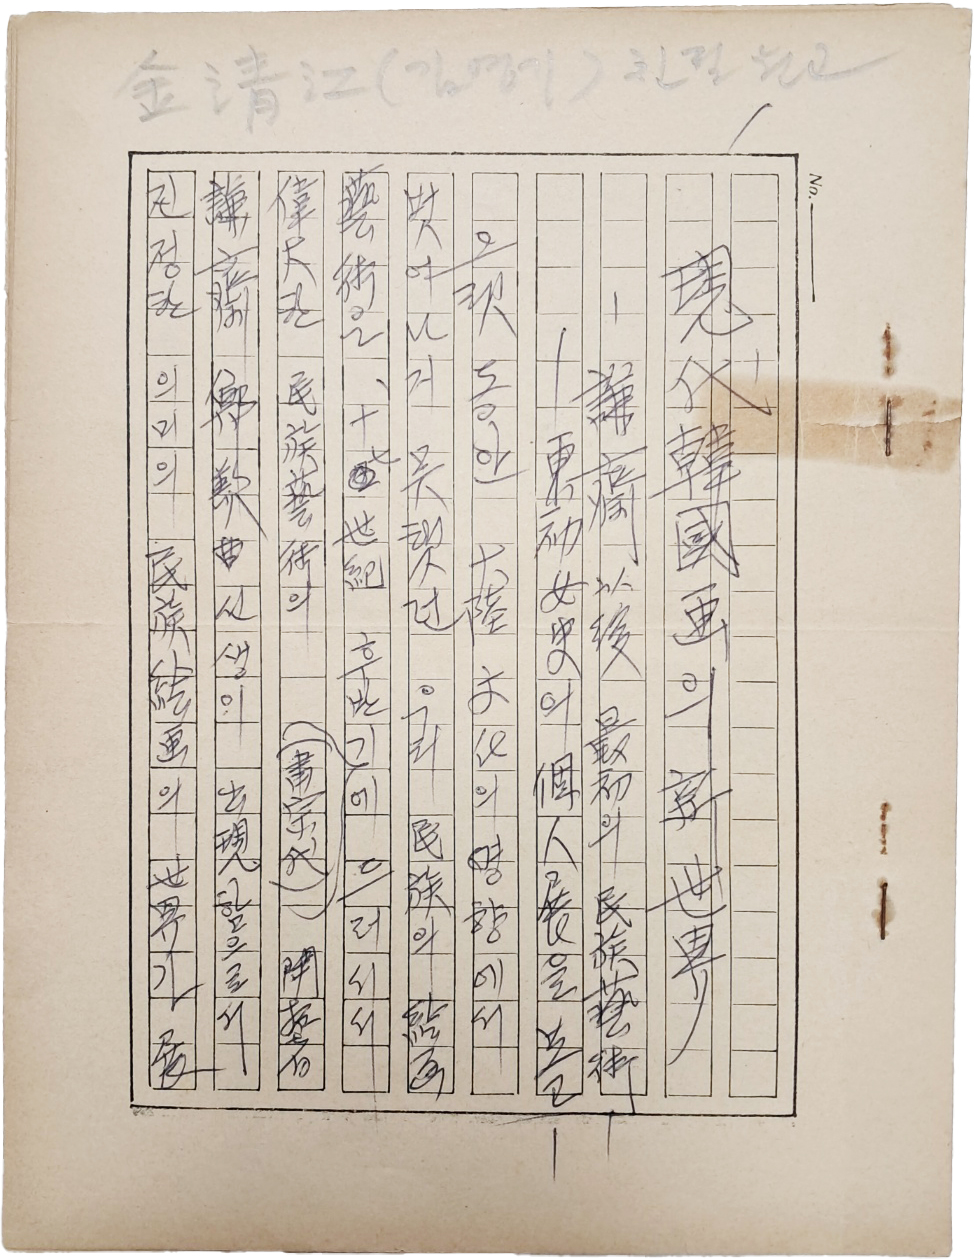 金清江(김영기) 친필 원고
No.
現代韓國画의 新世界
— 謙齋以後 最初의 民族藝術 —
— 東初女史의 個人展을 보고 —
오랫동안 大陸文化의 영향에서
벗어나지 못했던 우리 民族의 絵画
藝術은、十八世紀 후반기에 이러서서
偉大한 民族藝術의 (肅宗代)
謙齋 鄭敾 선생의 出現함으로서
진정한 의미의 民族絵画의 世界가